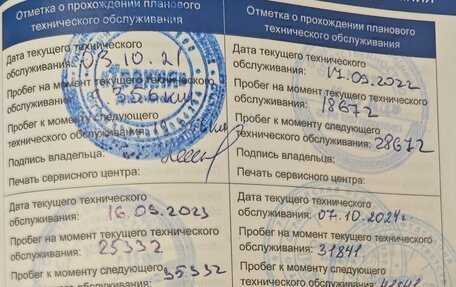 Отметка о прохождении планового
технического обслуживания
Дата текущего технического
обслуживания: 03.10.21
Пробег на момент текущего технического
обслуживания:
Пробег к моменту следующего
технического обслуживания:
Подпись владельца:
Печать сервисного центра:
Отметка о прохождении планового
технического обслуживания
Дата текущего технического
обслуживания: 17.09.2022
Пробег на момент текущего технического
обслуживания: 18672
Пробег к моменту следующего
технического обслуживания: 28672
Подпись владельца:
Печать сервисного центра:
Дата текущего технического
обслуживания: 16.09.2023
Пробег на момент текущего технического
обслуживания: 25332
Пробег к моменту следующего
35332
Дата текущего технического
обслуживания: 07.10.2024г.
Пробег на момент текущего технического
обслуживания: 31841
Пробег к моменту следующего